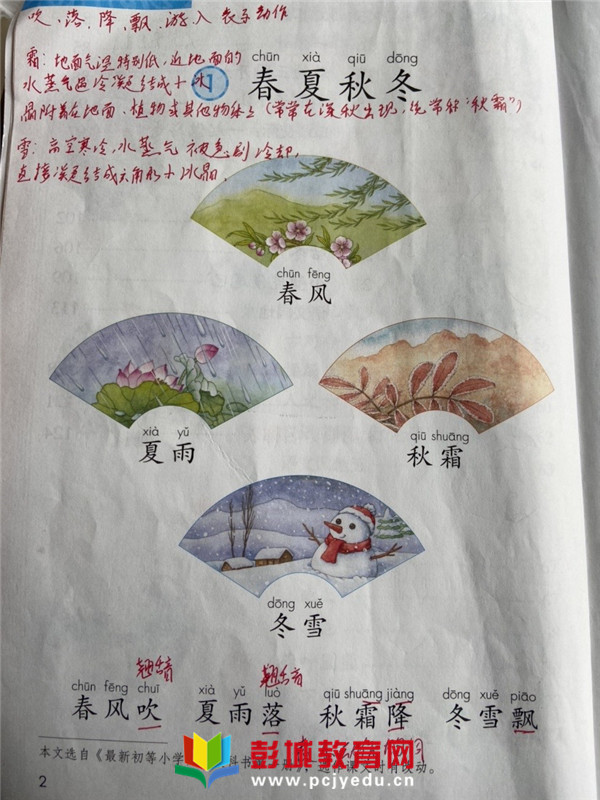 吹、落、降、飘、游、入 表示动作
霜：地面气温特别低，近地面的
水蒸气遇冷凝结成小冰
晶附着在地面、植物或其他物体上（常常在深秋出现，统常称“秋霜”）
雪：高空寒冷，水蒸气 急剧冷却，
直接凝结成六角形小冰晶。
chūn xià qiū dōng
① 春夏秋冬
chūn fēng
春风
xià yǔ
夏雨
qiū shuāng
秋霜
dōng xuě
冬雪
翘舌音 翘舌音
chūn fēng chuī xià yǔ luò qiū shuāng jiàng dōng xuě piāo
春风吹 夏雨落 秋霜降 冬雪飘
本文选自《最新初等小学 科书 册》，选作课文时有改动。
2
彭城教育网
www.pcjyedu.cn